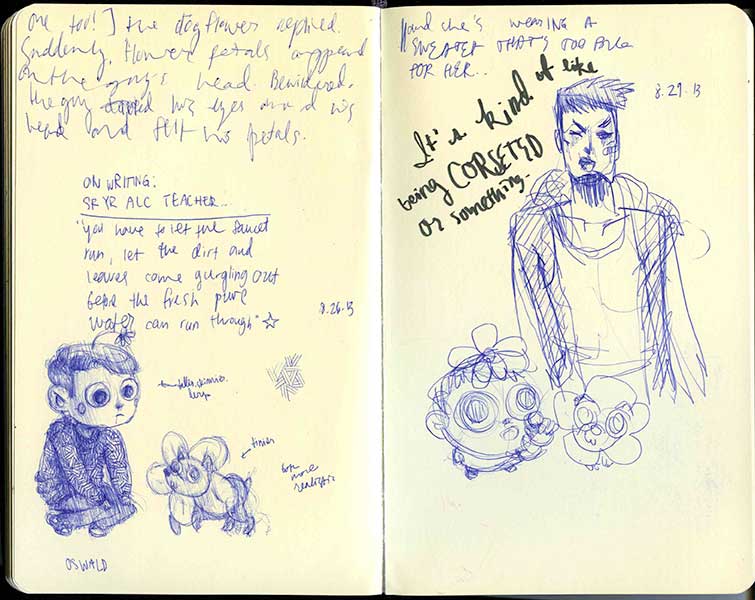 one too!] the dogflower replied.
Suddenly, flower petals appeared
on the guy's head. Bewildered,
the guy his eyes around his
head and felt his petals.
ON WRITING:
SR YR ALC TEACHER...
"You have to let the faucet
run, let the dirt and
leaves come gurgling out
before the fresh pure
water can run through" ☆
8.26.13
tinier
more
realistic
OSWALD
and she's wearing a
SWEATER THAT'S TOO BIG
FOR HER..
8.27.13
It's kind of like
being CORSETED
or something.